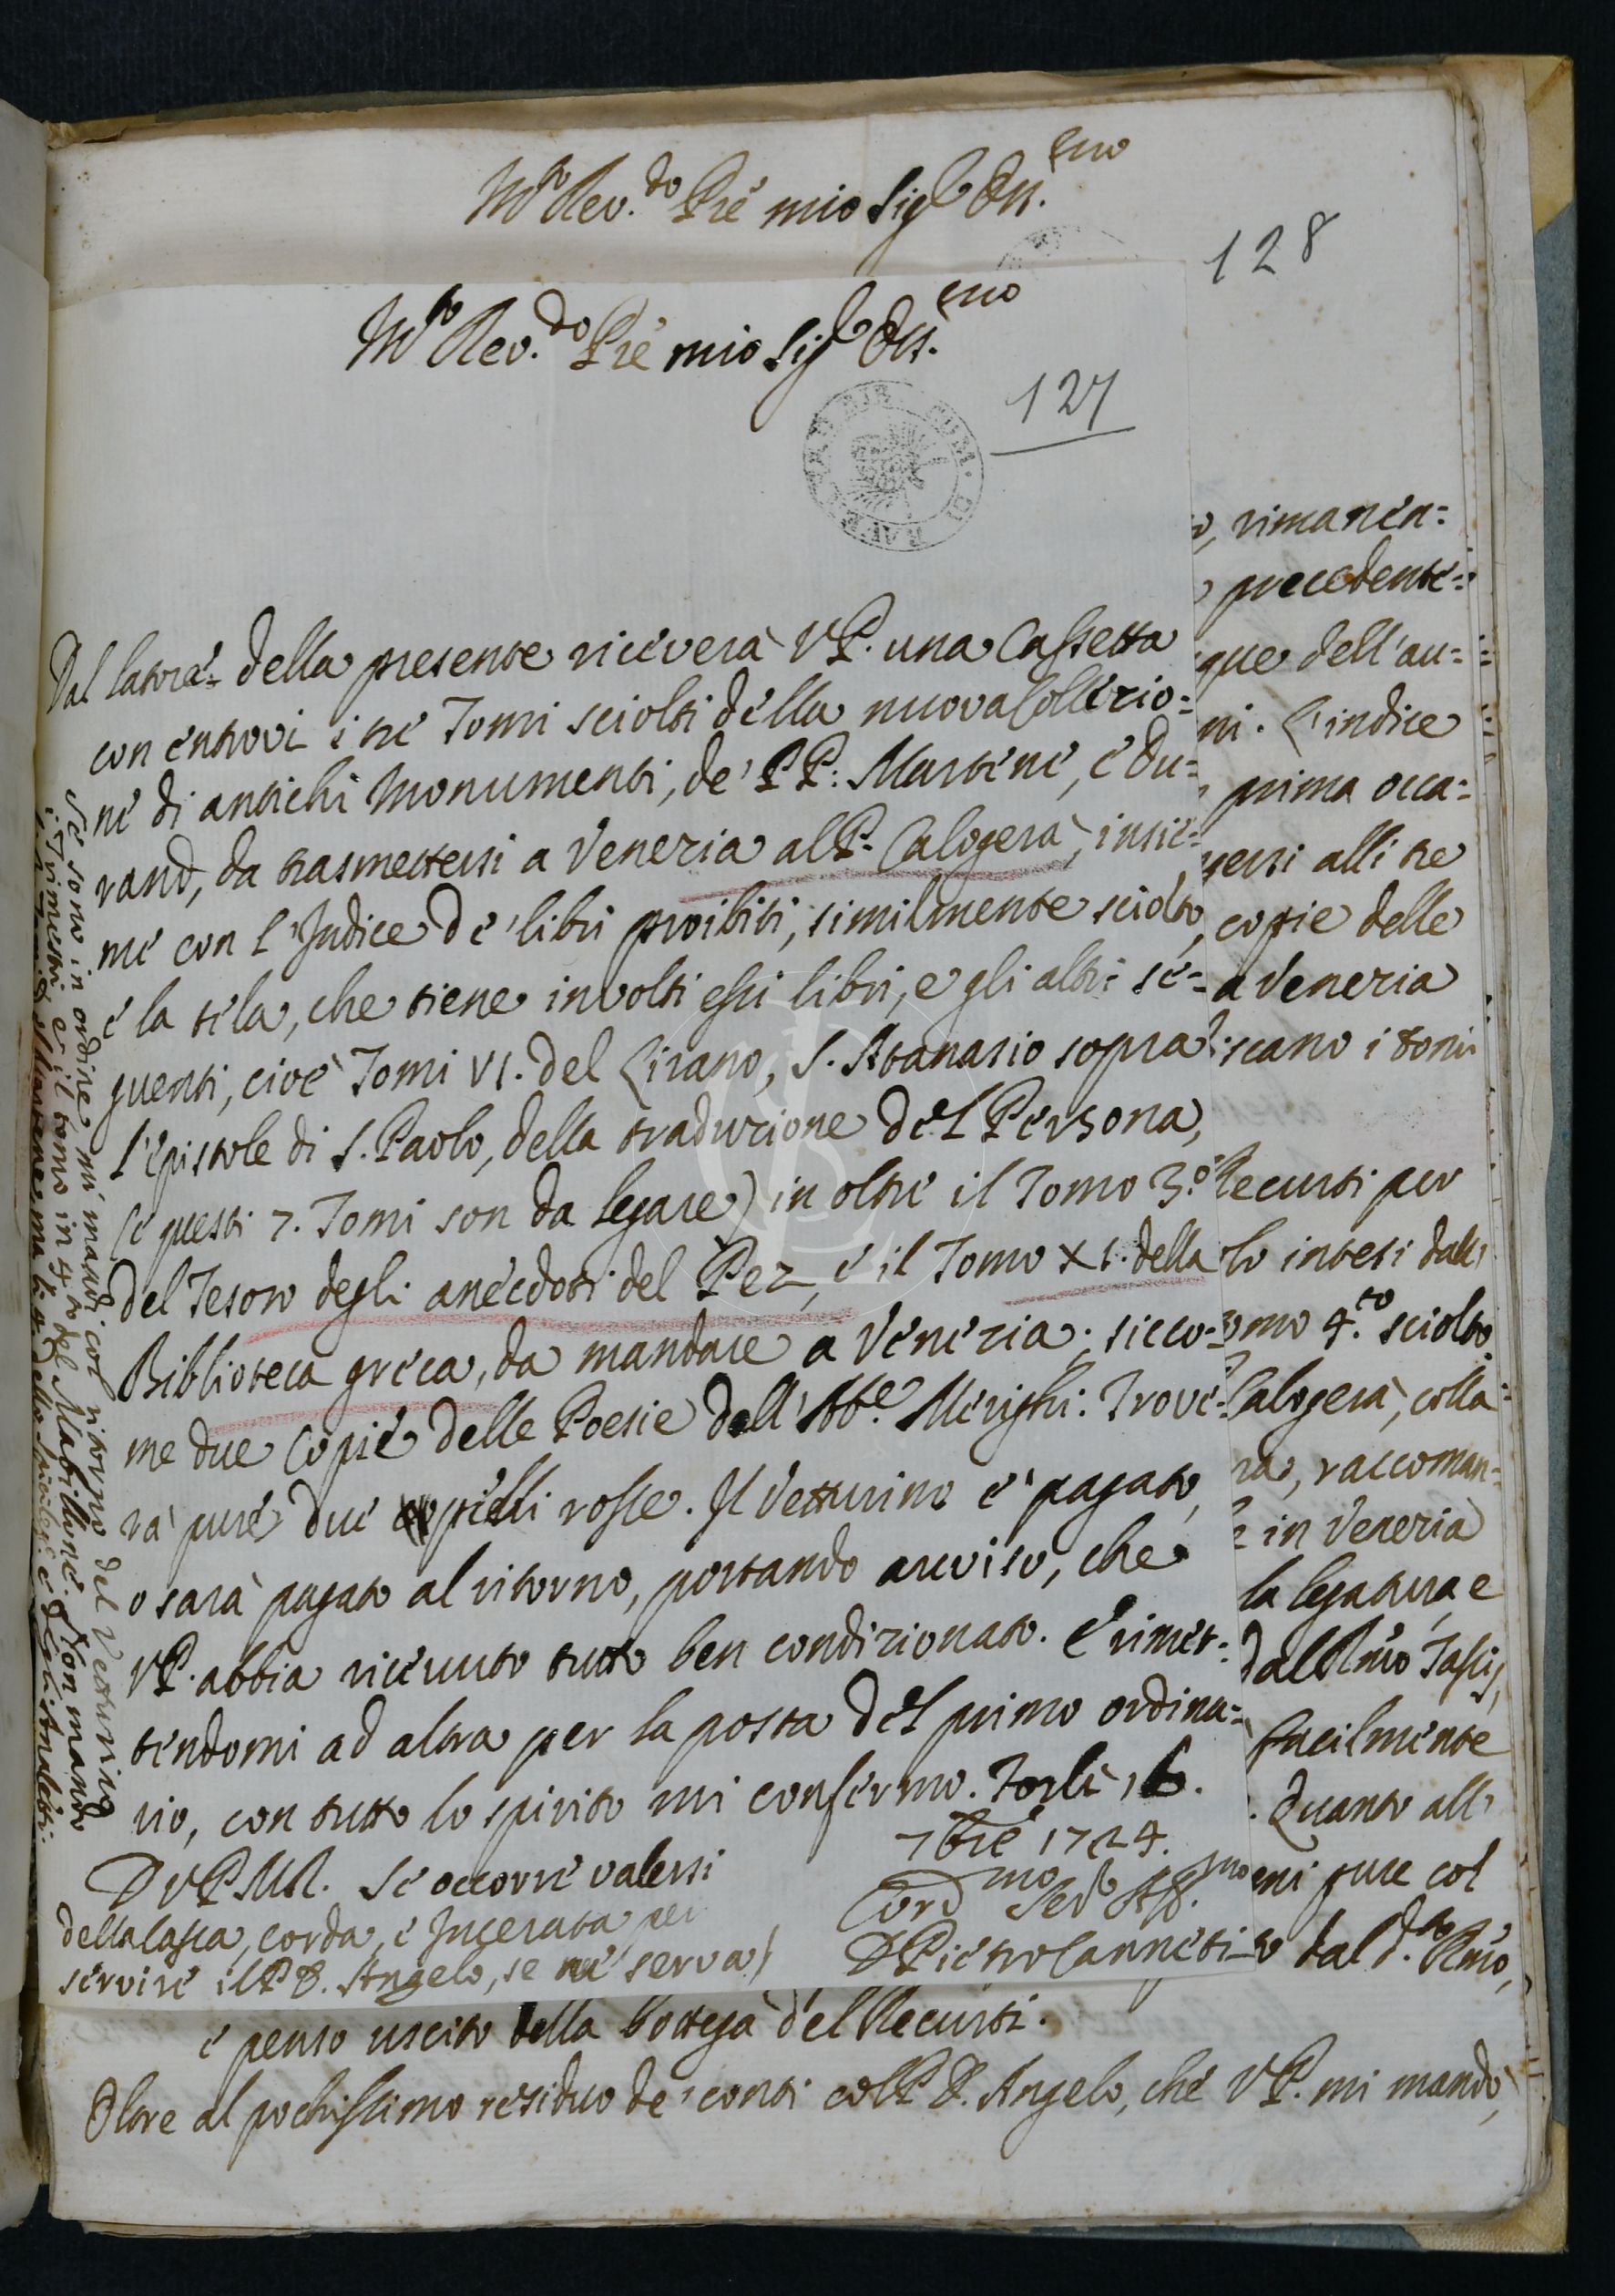 M.to Rev.do Prē mio Sig.r Oss.mo
128
M.to Rev.do Prē mio Sig.r Oss.mo
127
Dal latore della presente riceverà V.P. una Cassetta
con entrovi i tre Tomi sciolti della nuova Collezio=
ne di antichi Monumenti, de' PP. Martene, e Du=
rand, da trasmettersi a Venezia al P. Calogerà, insie=
me con l'Indice de' libri proibiti, similmente sciolto,
e la tela, che tiene involti essi libri, e gli altri se=
guenti, cioè Tomi VI. del Lirano, S. Atanasio sopra
l'epistole di S. Paolo, della traduzione del Persona,
(e questi 7. Tomi son da legare) in oltre il Tomo 3.o
del Tesoro degli anecdoti del Pez, e il Tomo XI. della
Biblioteca greca, da mandare a Venezia; sicco=
me due Copie delle Poesie dell'Ab.e Merighi. Trove=
rà pure due pielli rosse. Il Vetturino è pagato,
o sarà pagato al ritorno, portando avviso, che
V.P. abbia ricevuto tutto ben condizionato. E rimet=
tendomi ad altra per la posta del primo ordina=
rio, con tutto lo spirito mi confermo. Forlì 16.
7bre 1724.
D V.P.M.R. Se occorre valersi
della cassa, corda, e Incerata per
servire il P.D. Angelo, se ne serva
mo Ser.e Aff.mo
D Pietro Canneti
Se sono in ordine mi mandi col ritorno del Vetturino
i Trimestri e il tomo in 4.to del Mabillone. Non mando
, rimanen=
precedente=
que dell'au=
ni. L'indice
prima occa=
gersi alli tre
copie delle
a Venezia
iscano i tomi
Recurti per
lo intesi dall
omo 4.to sciolto.
Calogerà, colla
ra, raccoman=
in Venezia
la legatura, e
dal Rmo Tassis,
facilmente
. Quanto all
mi pure col
to dal d.to Rmo,
è penso uscito della bottega del Recurti.
Oltre al pochissimo residuo de' conti col P.D. Angelo, che V.P. mi mandò,